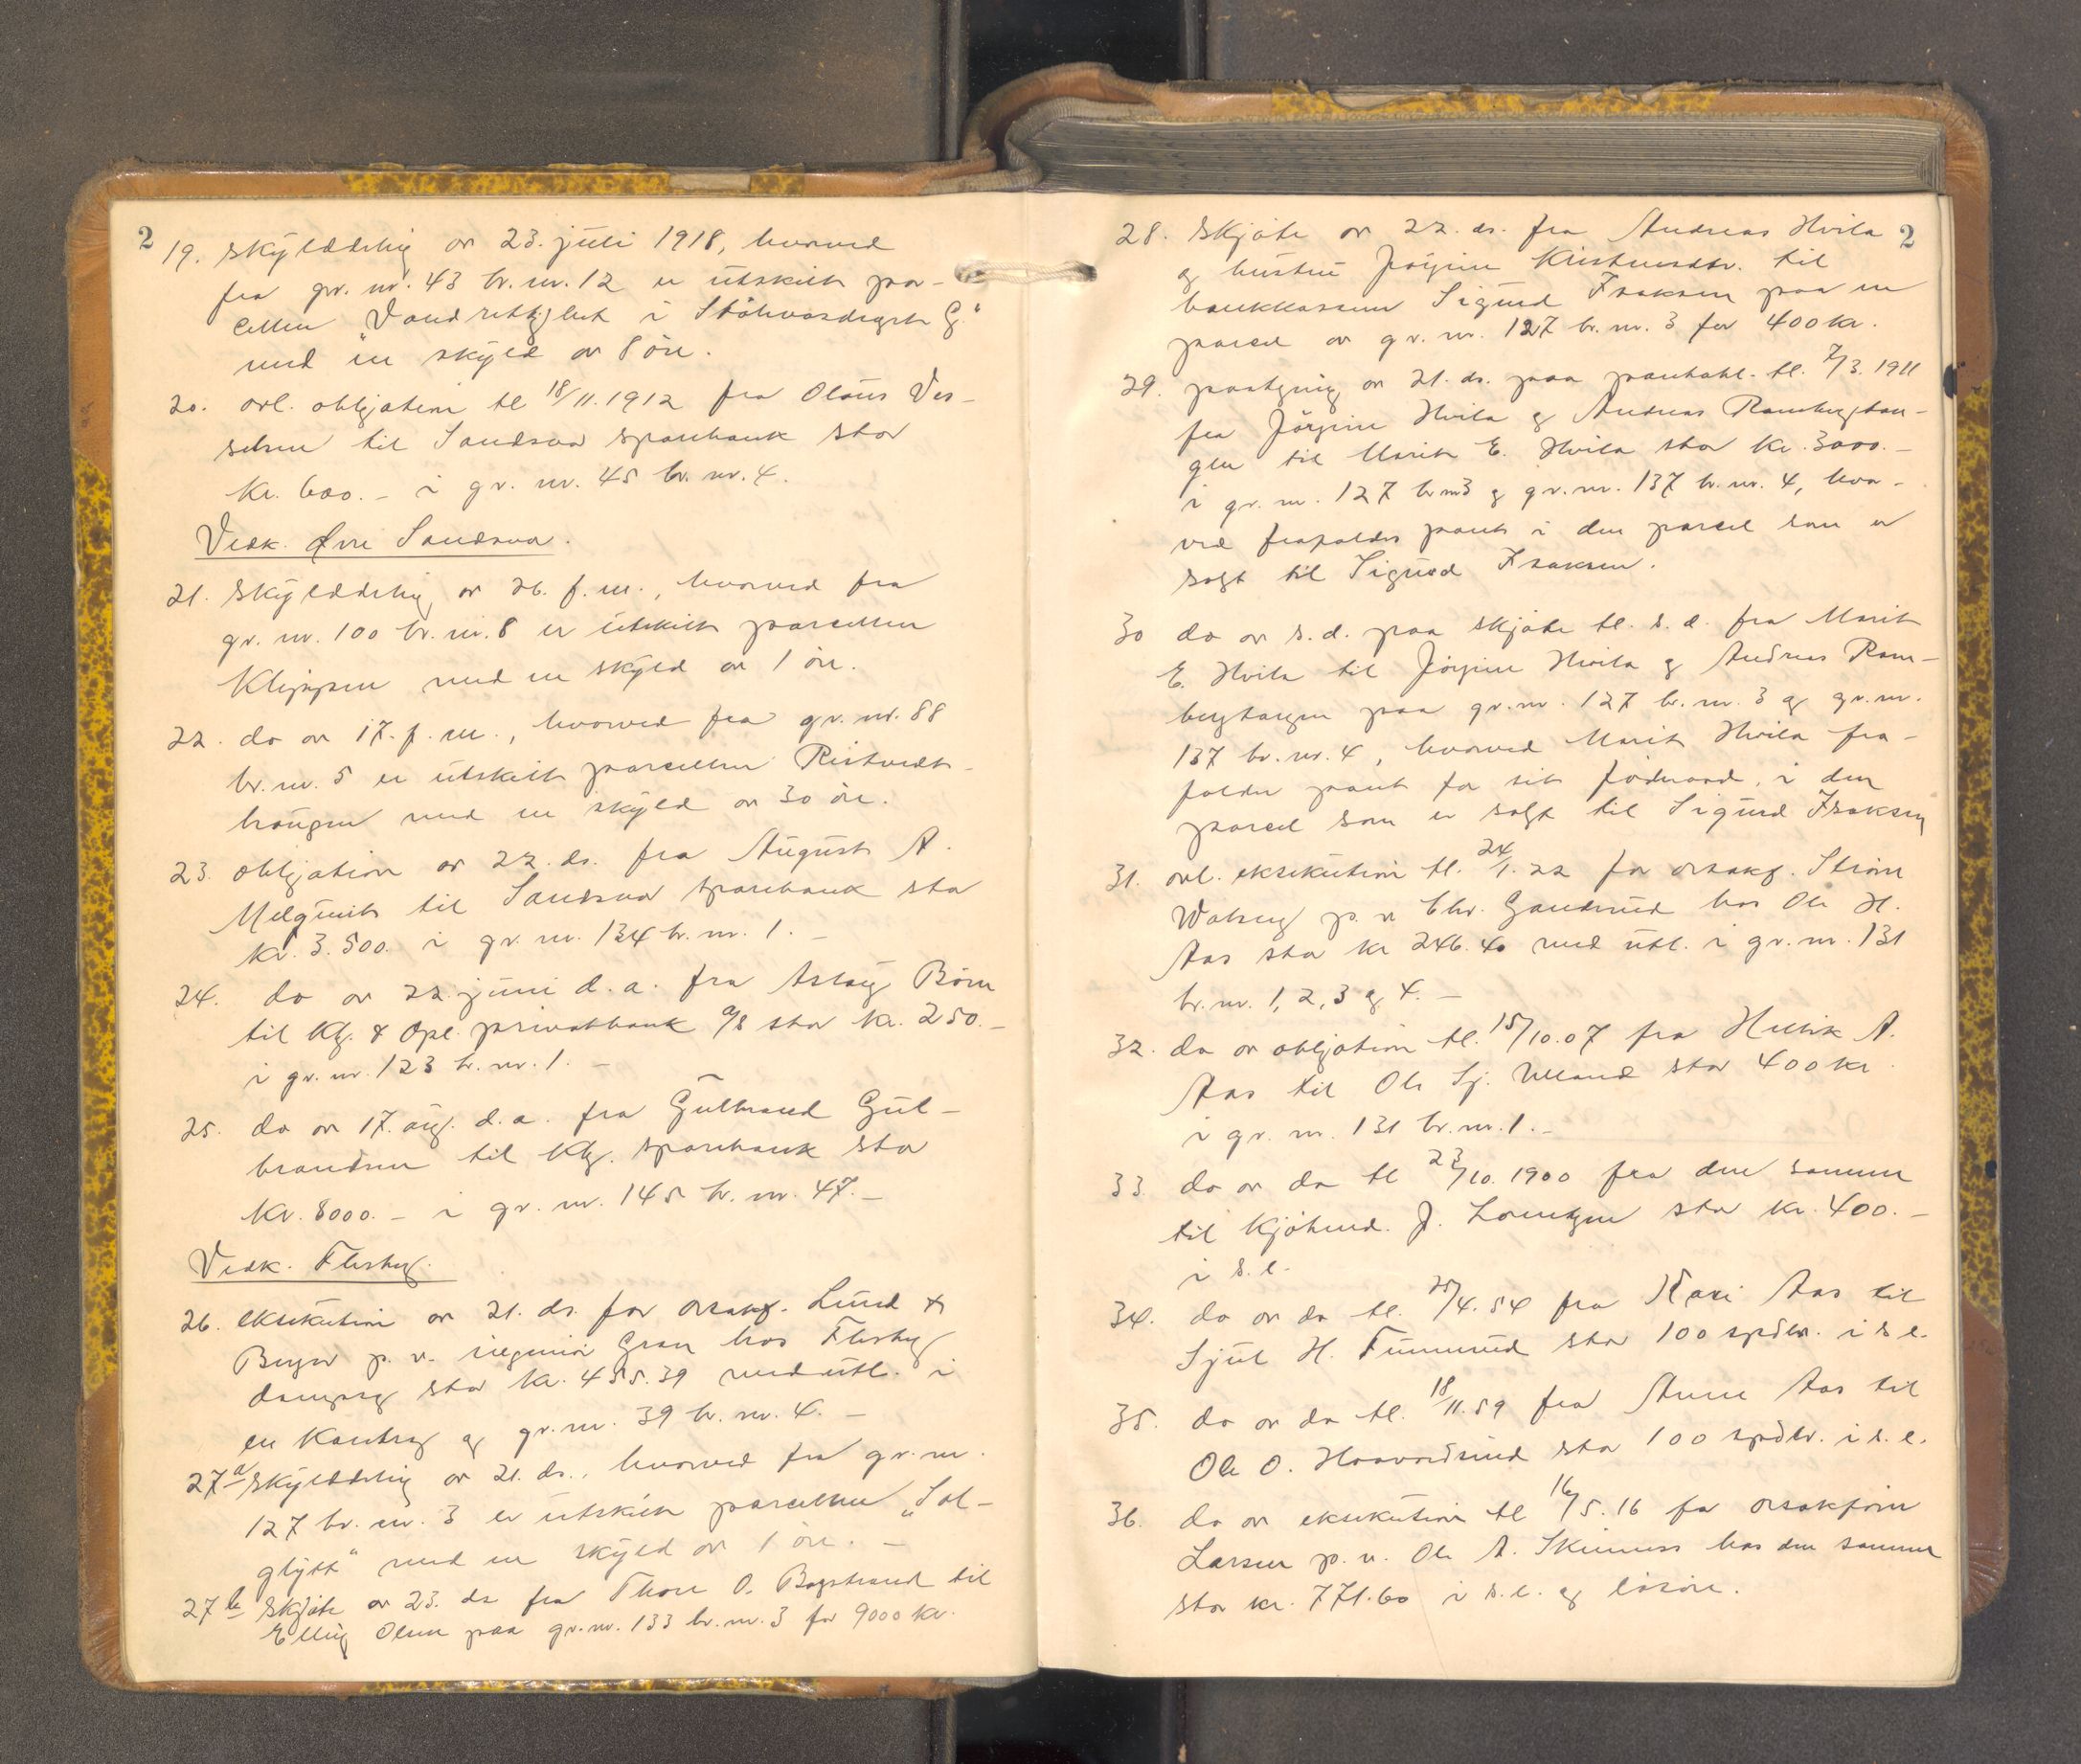 2
19. skylddeling av 23. juli 1918, hvorved
fra gr. nr. 43 br. nr. 12 er utskilt par-
cellen „Vandrettighet i
med en skyld av 8 øre.
20. avl. obligation tl 18/11.1912 fra Olaus Ves-
selsen til Sandsvær sparebank stor
kr. 600.- i gr. nr. 45 br. nr. 4.
Vedk. Øvre Sandsvær.
21. skylddeling av 26. f. m., hvorved fra
gr. nr. 100 br. nr. 8 er utskilt parcellen
Klippen med en skyld av 1 øre.
22. do av 17. f. m., hvorved fra gr. nr. 88
br. nr. 5 er utskilt parcellen Ristvedt-
haugen med en skyld av 30 øre.
23. obligation av 22. ds. fra August A.
til Sandsvær sparebank stor
kr. 3.500. i gr. nr. 134 br. nr. 1. -
24. do av 22. juni d. a. fra Aslaug
til Kbg. & Opl. privatbank a/s stor kr. 250.-
i gr. nr. 123 br. nr. 1. -
25. do av 17. aug. d. a. fra Gulbrand Gul-
brandsen til Kbg. sparebank stor
kr. 8000.- i gr. nr. 145 br. nr. 47.-
Vedk. Flesberg.
26. eksekution av 21. ds. for orsakf. Lund &
p. v. ingeniør Gran hos Flesberg
dampsag stor kr. 455.39 med utl. i
en og gr. nr. 39 br. nr. 4. -
27a skylddeling av 21. ds., hvorved fra gr. nr.
127 br. nr. 3 er utskilt parcellen „Sol-
glytt“ med en skyld av 1 øre. -
27b skjøte av 23. ds fra Thore O. Bogstrand til
Elling Olsen paa gr. nr. 133 br. nr. 3 for 9000 kr.
2
28. Skjøte av 22. ds. fra Andreas Hvila
og hustru Jørgine Kristensdtr. til
bankkasserer Sigurd Isaksen paa en
parcel av gr. nr. 127 br. nr. 3 for 400 kr.
29. paategning av 21. ds. paa pantobl. tl. 7/3. 1911
fra Jørgine Hvila og Andreas Rambergtan-
gen til Marit E. Hvila stor kr. 3000.-
i gr. nr. 127 br nr 3 og gr. nr. 137 br. nr. 4, hvor-
ved frafaldes pant i den parcel som er
solgt til Sigurd Isaksen.
30 do av s. d. paa skjøte tl. s. d. fra Marit
E. Hvila til Jørgine Hvila og Andreas Ram-
bergtangen paa gr. nr. 127 br. nr. 3 og gr. nr.
137 br. nr. 4, hvorved Marit Hvila fra-
falder pant for sit føderaad i den
parcel som er solgt til Sigurd Isaksen
31. avl. eksekution tl. 24/1. 22 for orsakf. Strøm
p. v. Chr. Gaudsrud hos Ole H.
Aas stor kr 246.40 med utl. i gr. nr. 131
br. nr. 1, 2, 3 og 4. -
32. do av obligation tl. 15/10.07 fra A.
Aas til Ole Sj. Ulland stor 400 kr.
i gr. nr. 131 br. nr. 1.-
33 do av do tl 23/10. 1900 fra den samme
til kjøbmd. J. Lorentzen stor kr. 400.-
i s. e.
34. do av do tl. 25/4. 54 fra Kari Aas til
Sjul H. stor 100 spdlr. i s e.
35. do av do tl. 18/11. 59 fra Anne Aas til
Ole O. Haavardsrud stor 100 spdlr. i s. e.
36. do av eksekution tl 16/5. 16 for orsakfører
Larsen p. v. Ole A. Skinnes hos den samme
stor kr. 771.60 i s. e. og løsøre.